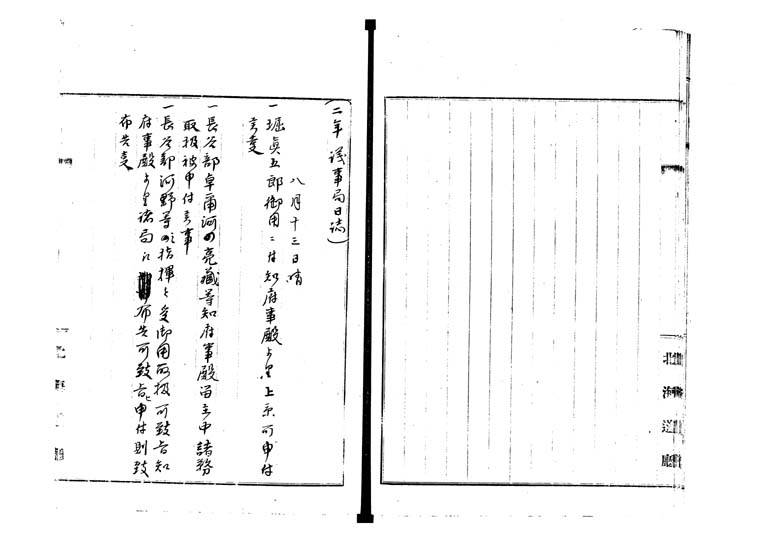 (二年 議事局日誌)
八月十三日晴
一堀眞五郎御用ニ付知府事殿ゟ上京可申付
一長谷部卓爾河の亮藏等知府事殿留主中諸務
取扱被申付候事
一長谷部河野等の指揮を受御用取扱可致旨知
府事殿ゟ諸局に布告可致旨申付則致
布告
北海道廳